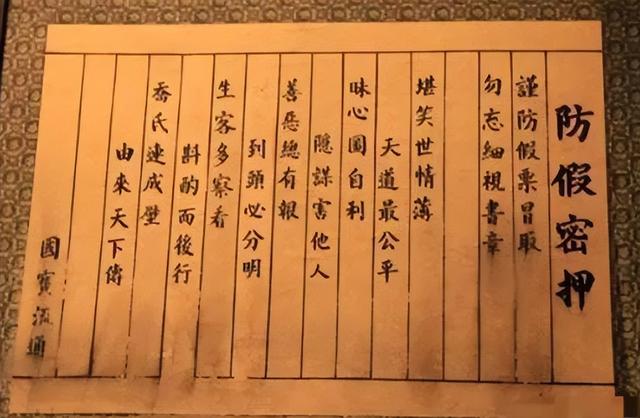 防假密押
謹防假票冒取
勿忘細視書章
堪笑世情薄
天道最公平
昧心圖自利
隱謀害他人
善惡總有報
到頭必分明
生客多察看
斟酌而後行
喬氏連成璧
由來天下傳
國寶流通